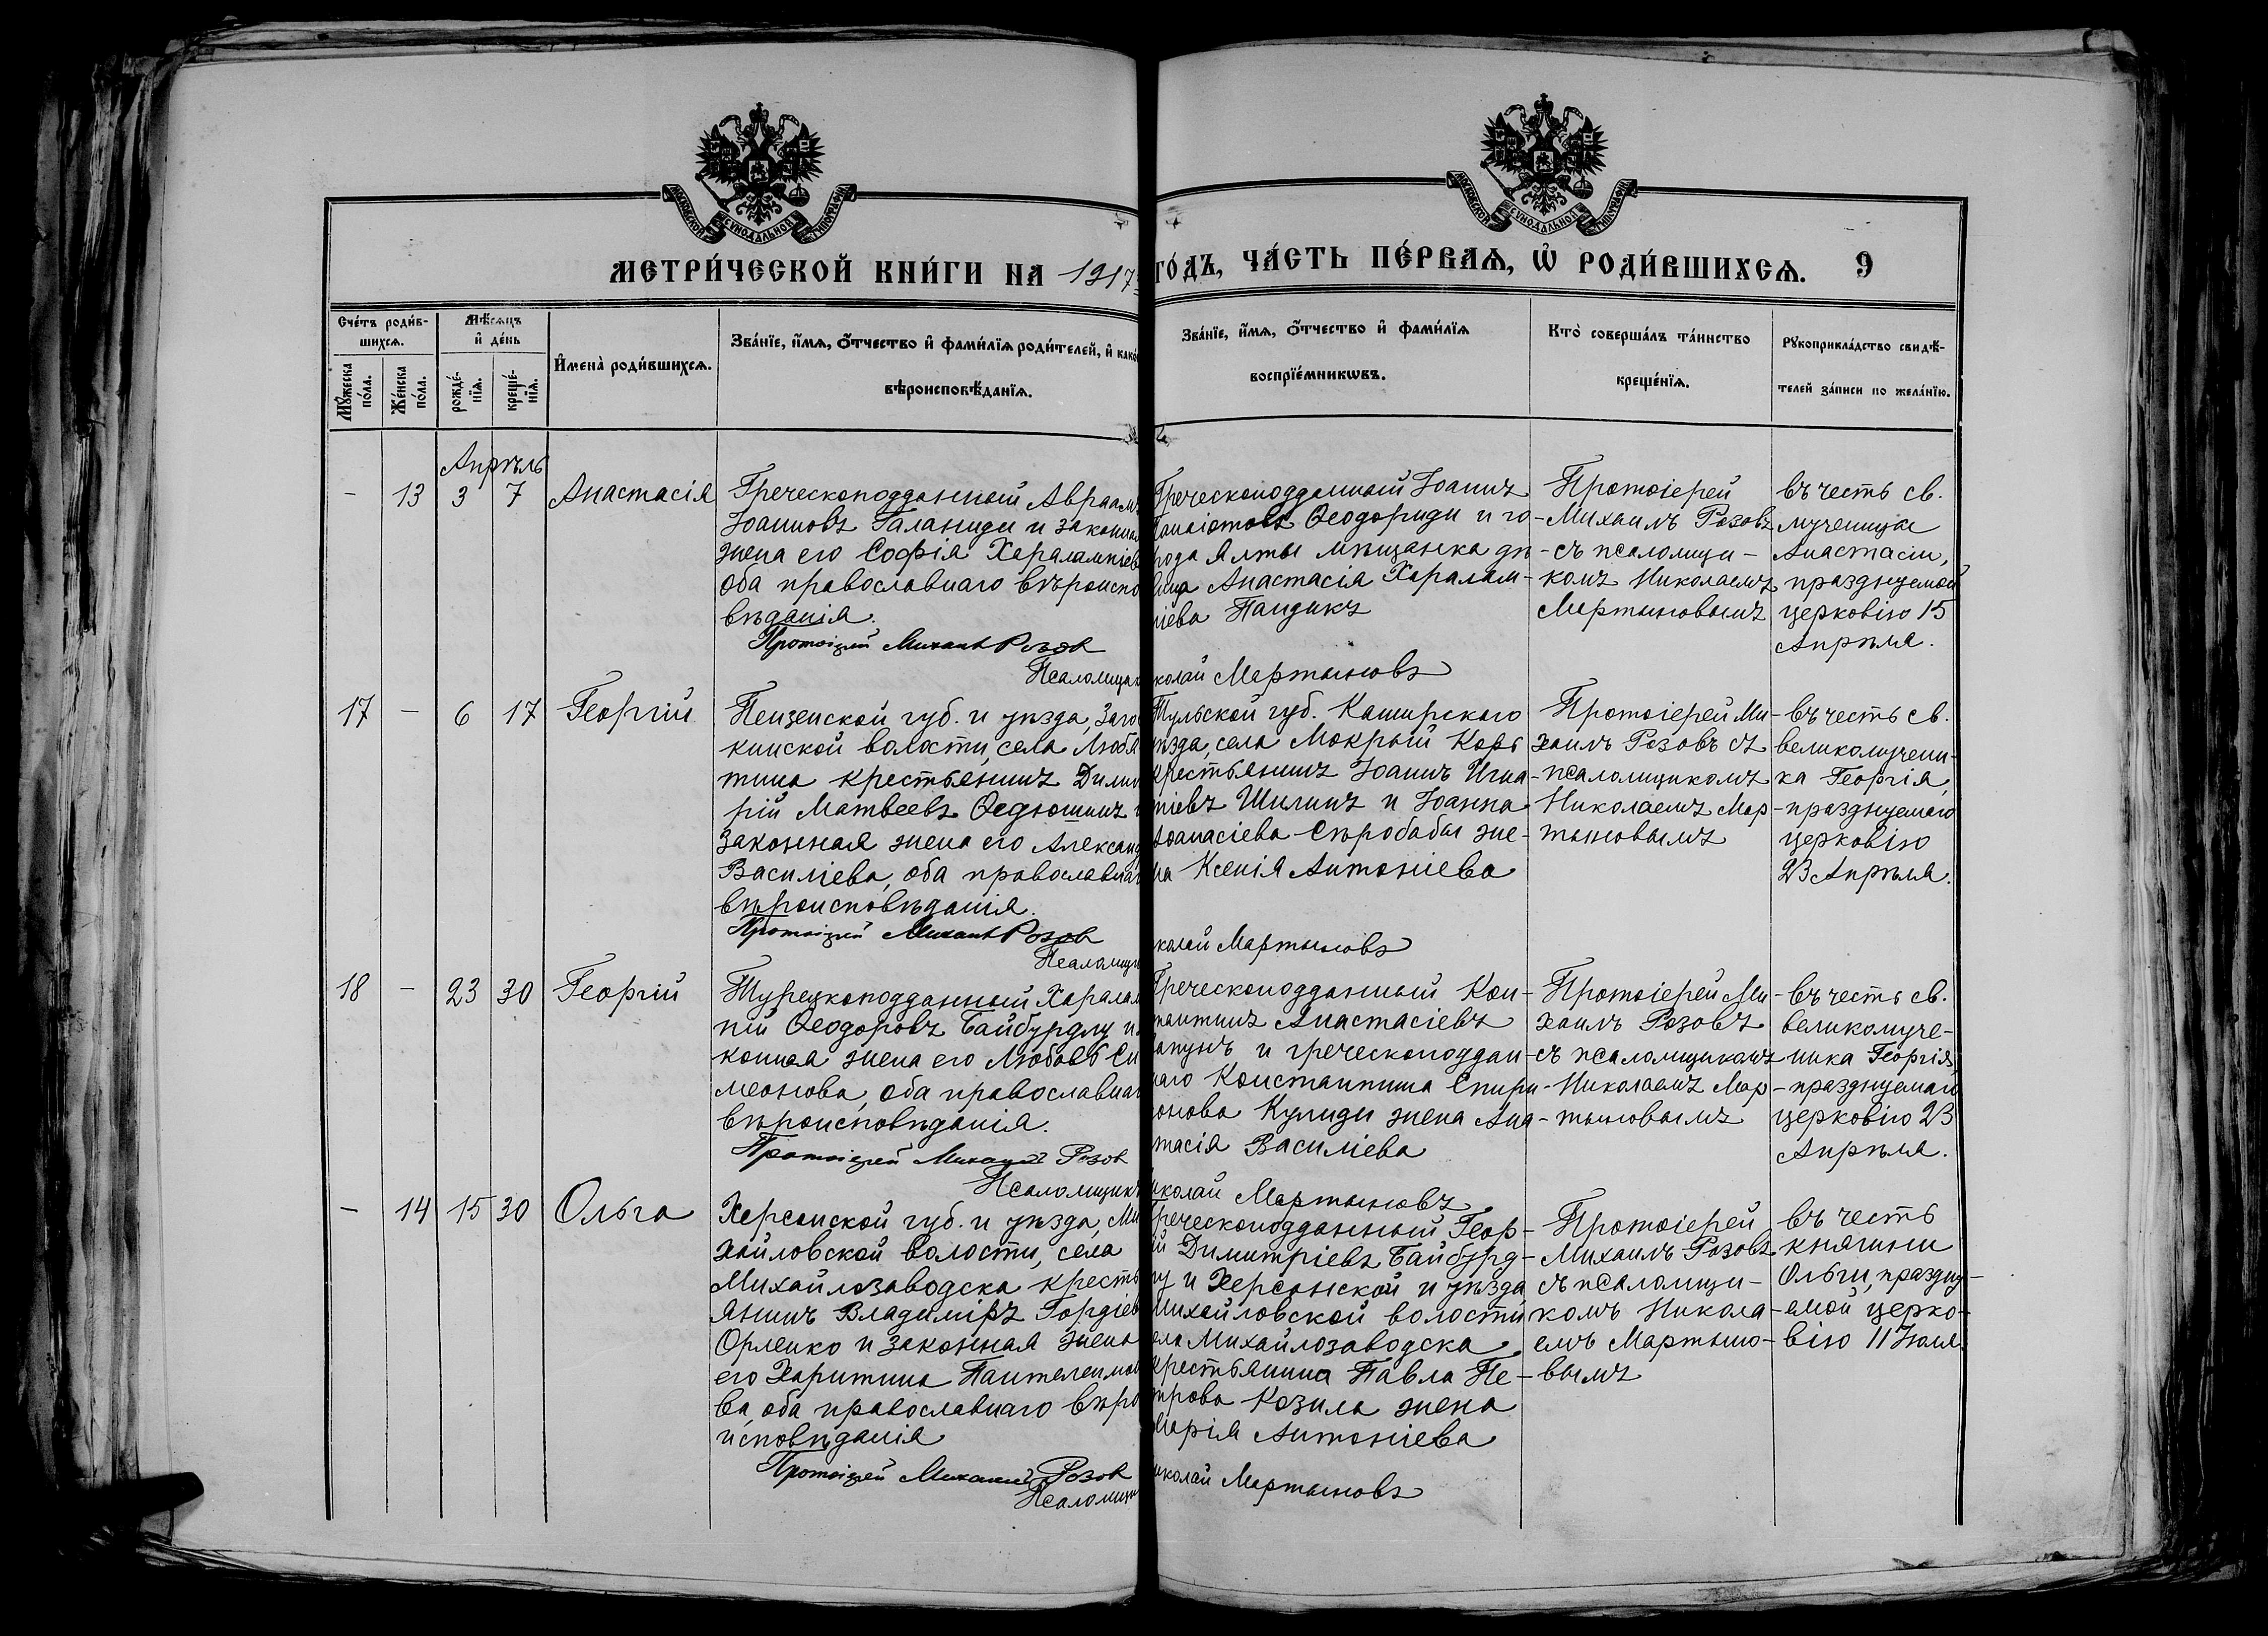 МОСКОВСКОЙ СѴНОДАЛЬНОЙ ТИПОГРАФІИ
МОСКОВСКОЙ СѴНОДАЛЬНОЙ ТИПОГРАФІИ
МЕТРИ́ЧЕСКОЙ КНИ́ГИ НА 1917
ГО́ДЪ, ЧА́СТЬ ПЕ́РВАѦ, Ѽ РОДИ́ВШИХСѦ. 9
Сче́тъ роди́в-
шихсѧ.
Мꙋ́жеска
по́ла.
Же́нска
по́ла.
Мѣ́сѧцъ
и҆ де́нь
рожде́-
нїѧ.
креще́-
нїѧ.
И҆мена̀ роди́вшихсѧ.
Зва́нїе, и҆́мѧ, ѻ҆́тчество и҆ фами́лїѧ роди́телей, и҆ како́
вѣроисповѣ́данїѧ.
Зва́нїе, и҆́мѧ, ѻ҆́тчество и҆ фами́лїѧ
воспрїе́мникѡвъ.
Кто̀ соверша́лъ та́инство
креще́нїѧ.
Рꙋкоприкла́дство свидѣ́-
телей за́писи по жела́нїю.
Апрѣль
- 13 3 7 Анастасія
Греческоподданный Авраамъ
Іоанновъ Галаниди и законная
жена его Софія Харалампіев
оба православнаго вѣроиспо
вѣданія.
Протоіерей Михаилъ Розов
Псаломщик
Греческоподданный Іоаннъ
Панаіотовъ Ѳеодориди и го-
рода Ялты мѣщанка дѣ-
вица Анастасія Харалам-
піева Пандикъ
николай Мартыновъ
Протоіерей
Михаилъ Розовъ
съ псаломщи-
комъ Николаемъ
Мартыновымъ
въ честь св.
мученицы
Анастасіи,
празднуемой
церковію 15
Апрѣля.
17 - 6 17 Георгій
Пензенской губ. и уѣзда, Заго
кинской волости, села Любя
тина крестьянинъ Дими
рій Матвеевъ Ѳедюшинъ и
законная жена его Александ
Василіева, оба православнаг
вѣроисповѣданія.
Протоіерей Михаилъ Розов
Псаломщи
Тульской губ. Каширскаго
уѣзда, села Мокрый Корь
крестьянинъ Іоаннъ Игна-
тіевъ Шилинъ и Іоанна
Аѳанасіева Сѣробабы же-
на Ксенія Антоніева
николай Мартыновъ
Протоіерей Ми-
хаилъ Розовъ съ
псаломщикомъ
Николаемъ Мар-
тыновымъ
въ честь св.
великомучени-
ка Георгія,
празднуемаго
церковію
23 Апрѣля.
18 - 23 30 Георгій
Турецкоподданный Харалам
пій Ѳеодоровъ Байбурдлу и за
конная жена его Любовь Си
меонова, оба православнаг
вѣроисповѣданія.
Протоіерей Михаилъ Розов
Псаломщикъ
Греческоподданный Кон-
стантинъ Анастасіевъ
апунъ и греческоподдан-
наго Константина Спири-
донова Кулиди жена Ана-
стасія Василіева
Николай Мартыновъ
Протоіерей Ми-
хаилъ Розовъ
съ псаломщикомъ
Николаемъ Мар-
тыновымъ
въ честь св.
великомуче-
ника Георгія,
празднуемаго
церковію 23
Апрѣля.
- 14 15 30 Ольга
Херсонской губ. и уѣзда, Ми
хайловской волости, села
Михайлозаводска кресть
янинъ Владиміръ Гордіев
Орленко и законная жена
его Харитина Пантелеимон
ва, оба православнаго вѣро
исповѣданія
Протоіерей Михаилъ Розов
Псаломщик
Греческоподданный Геор-
гій Димитріевъ Байбурд-
лу и Херсонской и уѣзда,
Михайловской волости
села Михайлозаводска,
крестьянина Павла Пе-
трова Козила жена
Марія Антоніева
Николай Мартыновъ
Протоіерей
Михаилъ Розовъ
съ псаломщи-
комъ Никола-
емъ Мартыно-
вымъ
въ честь
княгини
Ольги, праздну-
емой церко-
вію 11 Іюля.